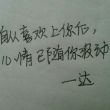 自从喜欢上你后,
心情已随你波动
一达